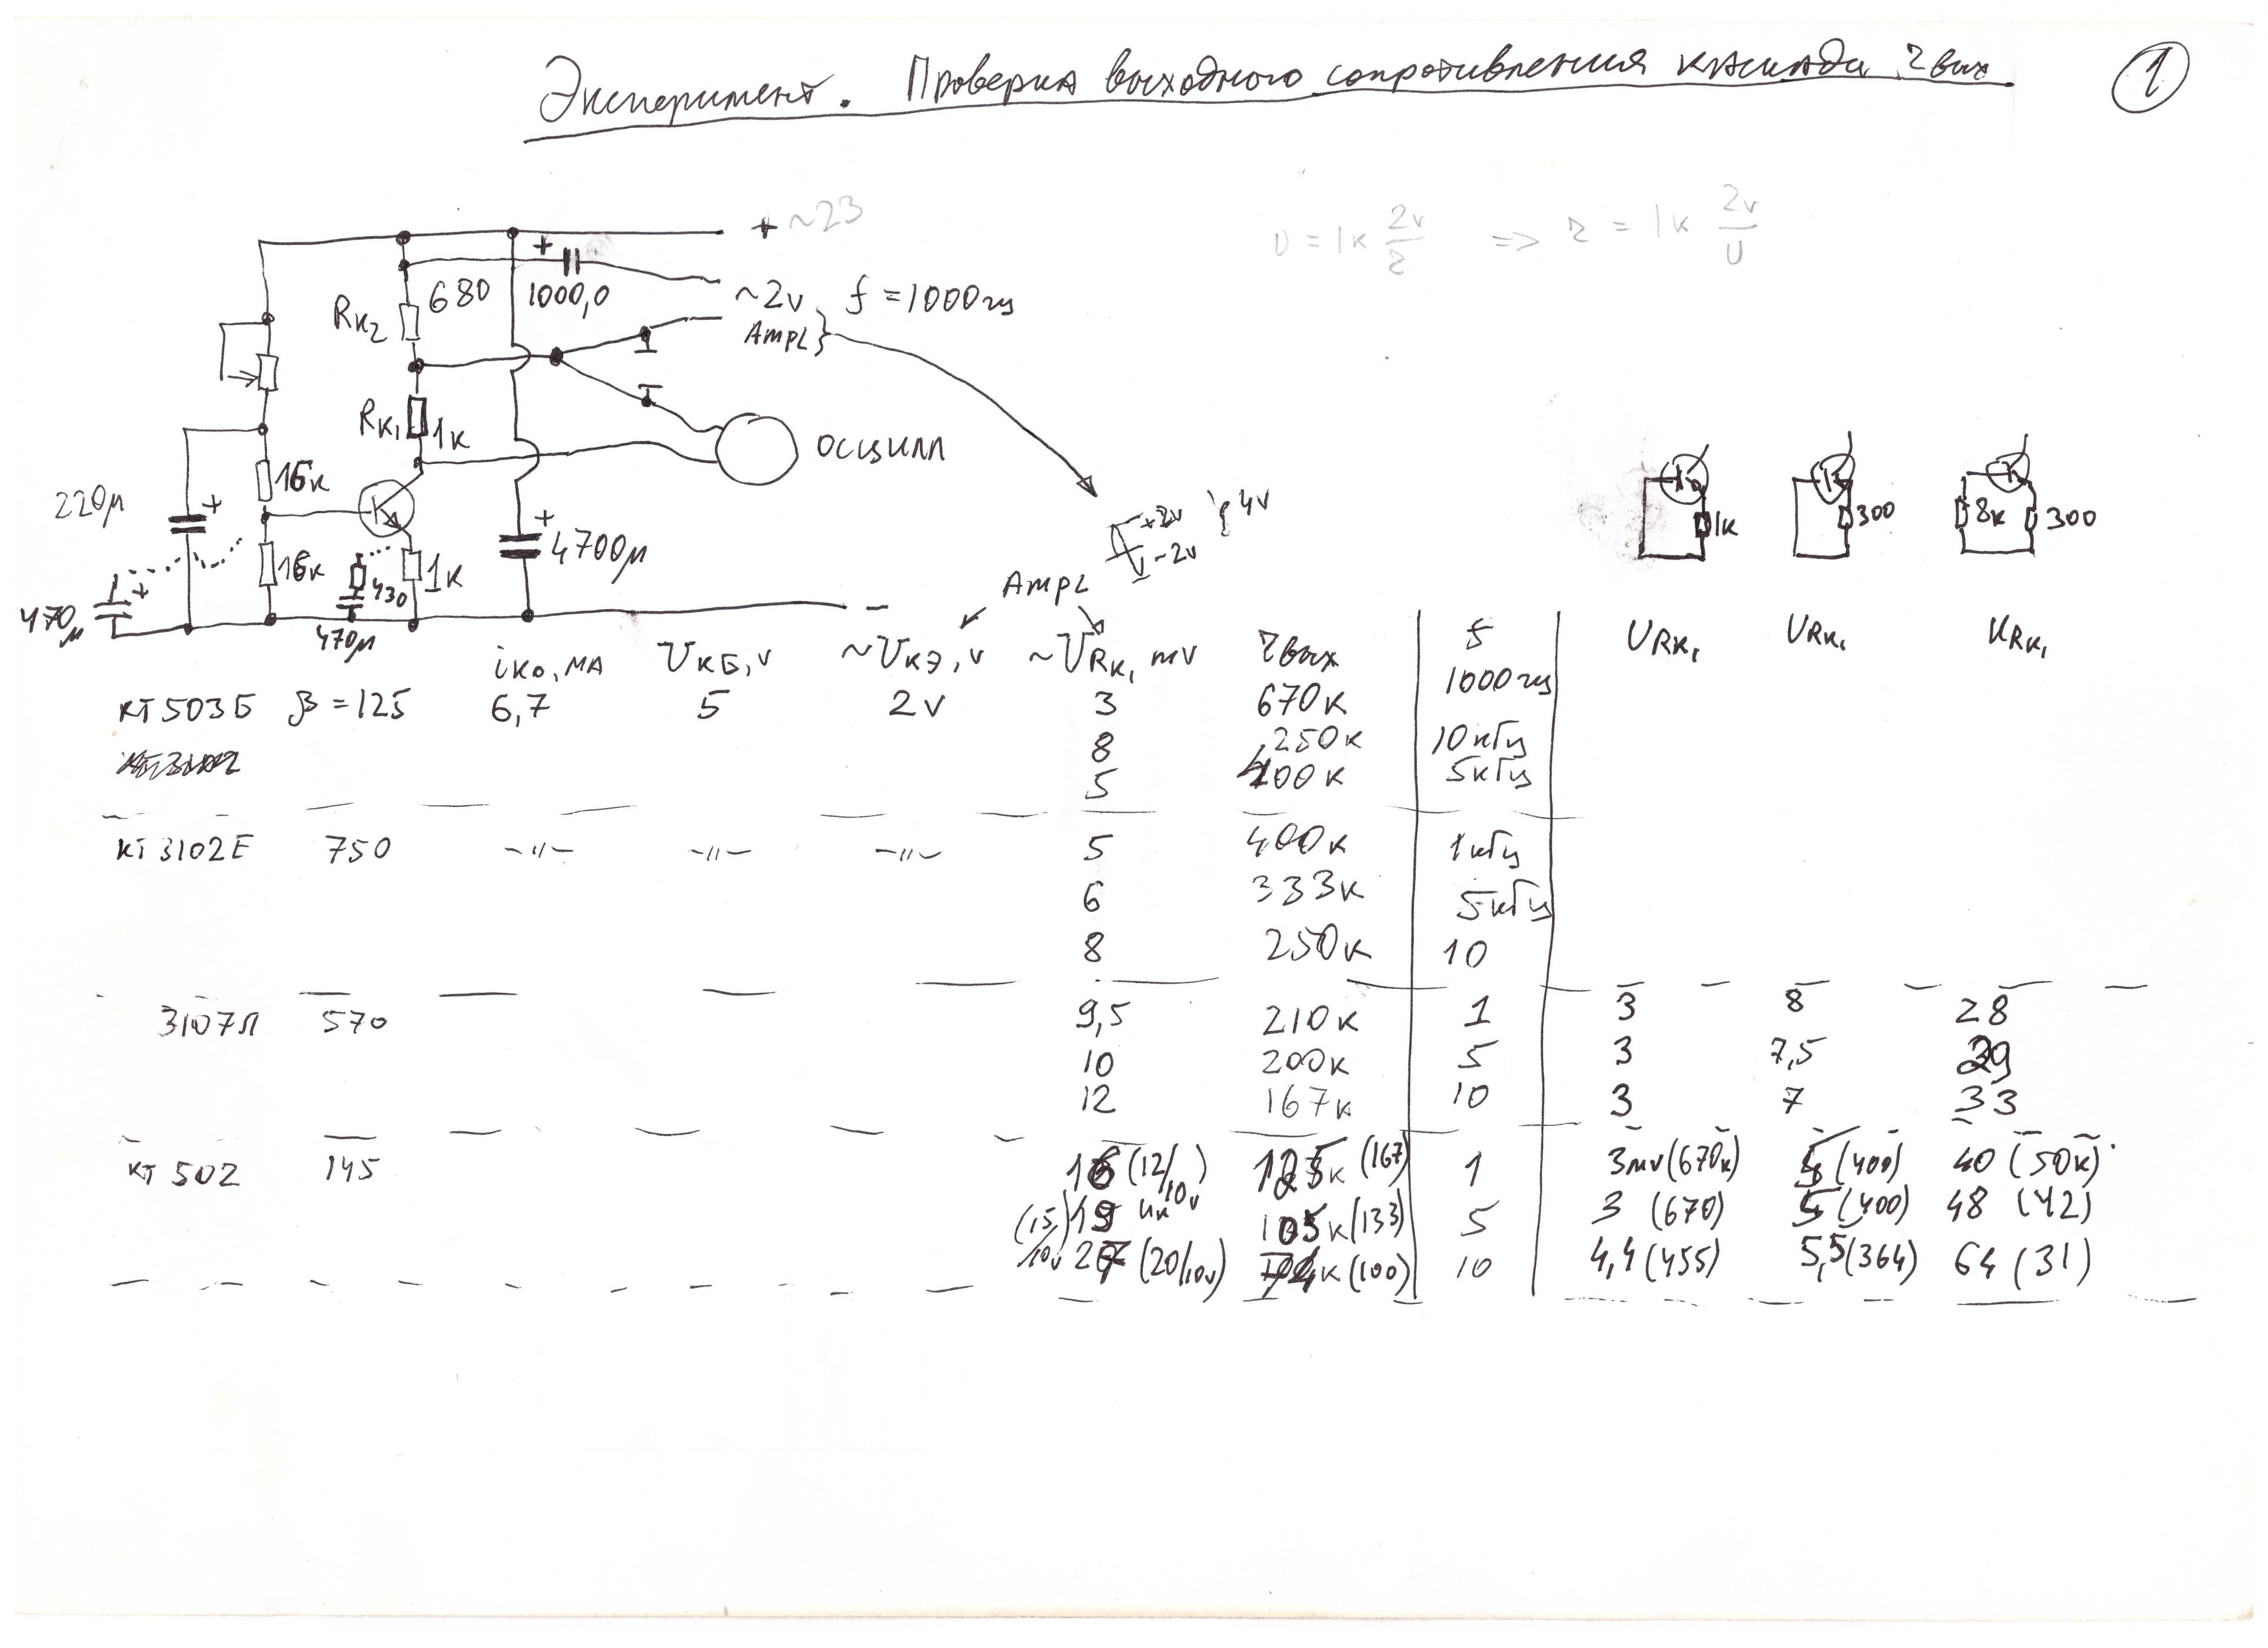 Эксперимент. Проверка выходного сопротивления каскада rвых
1
+ ~23
U = 1к 2v/r => r = 1к 2v/U
Rк2 680 1000,0
~2v f = 1000гц
Ampl
Rк1 1к
осцилл
16к
220μ + + 4700μ
+2v
-2v
4v
1к 300 8к 300
16к 430 1к
470μ +
470μ
-
Ampl
iко, мА Uкб, v ~Uкэ, v ~URк1, mv rвых f URк1 URк1 URк1
КТ503Б β = 125 6,7 5 2v 3 670к 1000гц
8 250к 10кГц
5 400к 5кГц
КТ3102Е 750 -"- -"- -"- 5 400к 1кГц
6 333к 5кГц
8 250к 10
3107Л 570 9,5 210к 1 3 8 28
10 200к 5 3 7,5 29
12 167к 10 3 7 33
КТ502 145 16 (12/10v) 125к (167) 1 3mv (670к) 5 (400) 40 (50к)
(15/10v) 19 105к (133) 5 3 (670) 5 (400) 48 (42)
27 (20/10v) 74к (100) 10 4,4 (455) 5,5 (364) 64 (31)